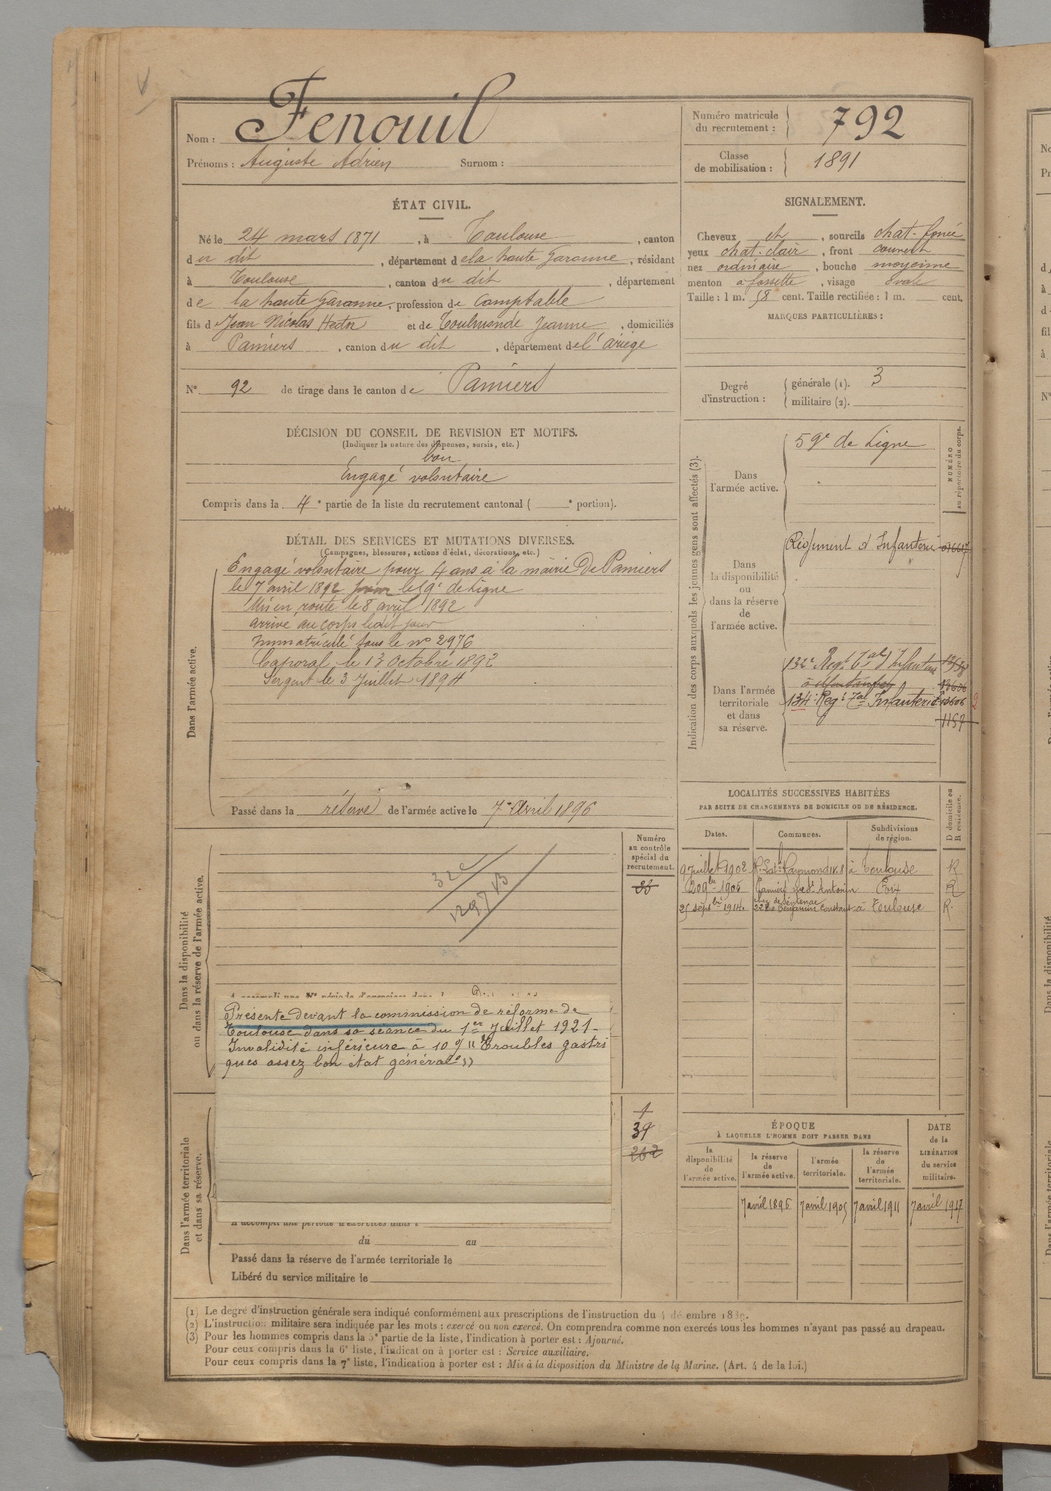 Nom : Fenouil
Prénoms : Auguste Adrien Surnom :
Numéro matricule du recrutement : 792
Classe de mobilisation : 1891
ÉTAT CIVIL.
Né le 24 mars 1871, à Toulouse, canton
du dit, département de la haute Garonne, résidant
à Toulouse, canton du dit, département
de la haute Garonne, profession de Comptable
fils de Jean Nicolas Hector et de Toulmonde Jeanne, domiciliés
à Pamiers, canton du dit, département de l'ariège
N° 92 de tirage dans le canton de Pamiers
SIGNALEMENT.
Cheveux ch, sourcils chat-foncé
yeux chat-clair, front couvert
nez ordinaire, bouche moyenne
menton à fossette, visage ovale
Taille : 1 m. 58 cent. Taille rectifiée : 1 m. cent.
MARQUES PARTICULIÈRES :
Degré d'instruction : générale (1). 3
militaire (2).
DÉCISION DU CONSEIL DE REVISION ET MOTIFS.
(Indiquer la nature des dispenses, sursis, etc.)
bon
Engagé volontaire
Compris dans la 4e partie de la liste du recrutement cantonal ( e portion).
DÉTAIL DES SERVICES ET MUTATIONS DIVERSES.
(Campagnes, blessures, actions d'éclat, décorations, etc.)
Dans l'armée active.
Engagé volontaire pour 4 ans à la mairie de Pamiers
le 7 avril 1892 pour le 59e de Ligne
Mis en route le 8 avril 1892
arrivé au corps ledit jour
Immatriculé sous le n° 2976
Caporal le 13 Octobre 1892
Sergent le 3 Juillet 1894
Passé dans la réserve de l'armée active le 7 Avril 1896
Indication des corps auxquels les jeunes gens sont affectés (3).
NUMÉRO au répertoire du corps.
Dans l'armée active.
59e de Ligne
Dans la disponibilité ou dans la réserve de l'armée active.
Régiment d'Infanterie
Dans l'armée territoriale et dans sa réserve.
132e Regt Tal d'Infanterie
à
134e Regt Tal Infanterie
1157
LOCALITÉS SUCCESSIVES HABITÉES
PAR SUITE DE CHANGEMENTS DE DOMICILE OU DE RÉSIDENCE.
Dates. Communes. Subdivisions de région. D domicile ou R résidence.
9 juillet 1902 à Toulouse R
20 9bre 1905 Pamiers Foix R
25 septbre 1914 Benjamin Constant à Toulouse R
Dans la disponibilité ou dans la réserve de l'armée active.
Numéro au contrôle spécial du recrutement.
Présenté devant la commission de réforme de
Toulouse dans sa séance du 1er Juillet 1921 -
Invalidité inférieure à 10 % "Troubles gastri
ques assez bon état général"
Dans l'armée territoriale et dans sa réserve.
1
39
262
du au
Passé dans la réserve de l'armée territoriale le
Libéré du service militaire le
ÉPOQUE
À LAQUELLE L'HOMME DOIT PASSER DANS
DATE de la LIBÉRATION du service militaire.
la disponibilité de l'armée active. la réserve de l'armée active. l'armée territoriale. la réserve de l'armée territoriale.
7 avril 1896 7 avril 1905 7 avril 1911 7 avril 1917
(1) Le degré d'instruction générale sera indiqué conformément aux prescriptions de l'instruction du 4 décembre 1889.
(2) L'instruction militaire sera indiquée par les mots : exercé ou non exercé. On comprendra comme non exercés tous les hommes n'ayant pas passé au drapeau.
(3) Pour les hommes compris dans la 5e partie de la liste, l'indication à porter est : Ajourné.
Pour ceux compris dans la 6e liste, l'indication à porter est : Service auxiliaire.
Pour ceux compris dans la 7e liste, l'indication à porter est : Mis à la disposition du Ministre de la Marine. (Art. 4 de la loi.)